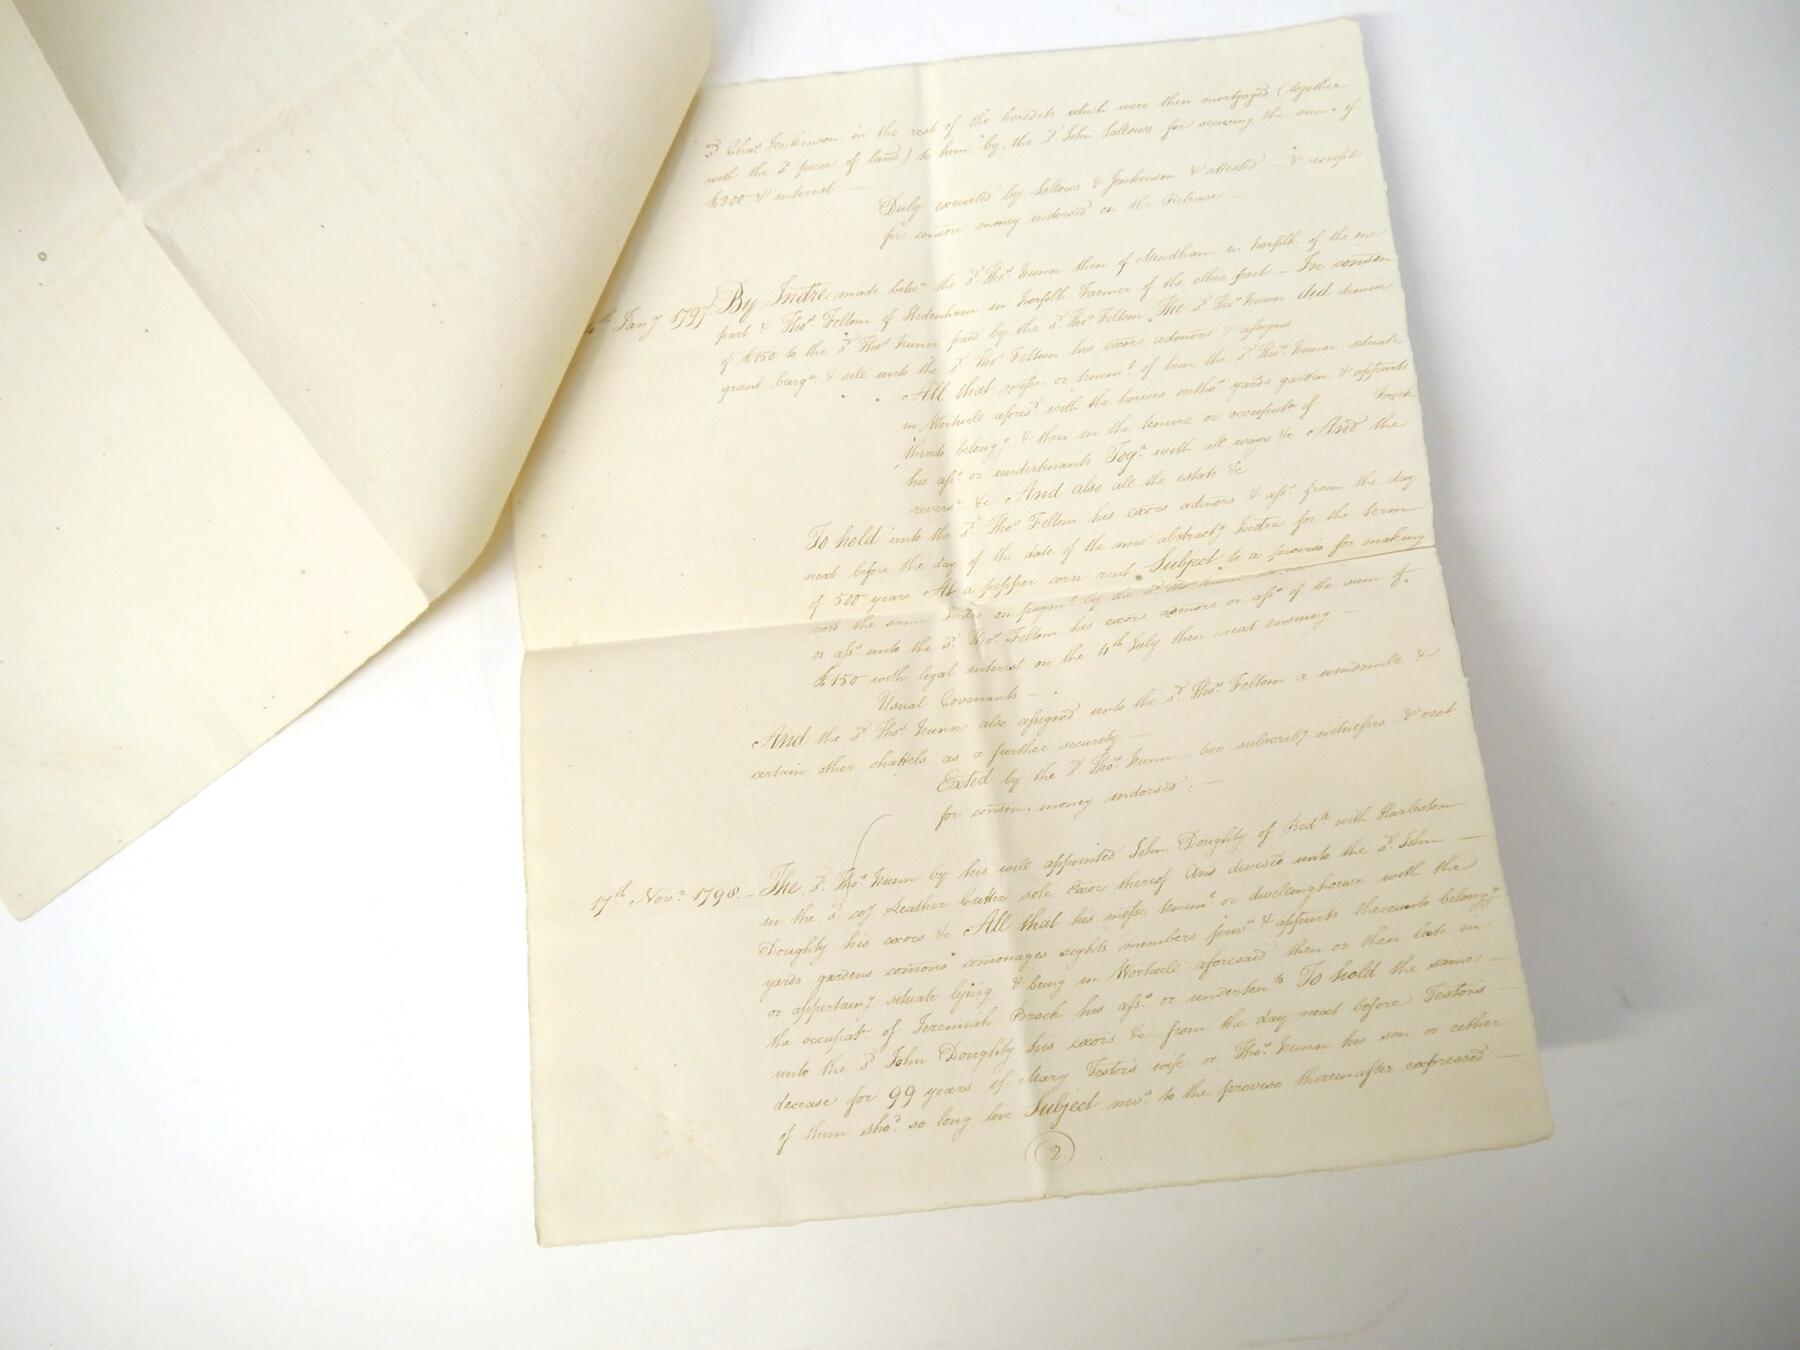 sd Chas Jenkinson in the rest of the heredits which were then mortgaged (together
with the sd piece of land) to him by the sd John Sallows for securing the sum of
£200 & interest —
Duly executed by Sallows & Jenkinson & attested — & receipt
for conson money indorsed on the Release —
4th Jany 1797. By Indre made betwn the sd Thos Nunn then of Mendham in Norfolk of the one
part & Thos Feltom of Redenham in Norfolk Farmer of the other part — In conson
of £150 to the sd Thos Nunn paid by the sd Thos Feltom The sd Thos Nunn did demise
grant bargn & sele unto the sd Thos Feltom his exors admors & assigns
All that messe or tenemt of him the sd Thos Nunn situate
in Wortwell aforesd with the houses outhos yards garden & appurts
thereto belongg & then in the tenure or occupatn of Brock
his asss or undertenants Togr with all ways &c And the
reversn &c And also all the estate &c
To hold unto the sd Thos Feltom his exors admors & asss from the day
next before the day of the date of the now abstractg Indre for the term
of 500 years At a pepper corn rent Subject to a proviso for making
void the same Indre on paymt by the sd Thos Nunn
or asss unto the sd Thos Feltom his exors admors or asss of the sum of
£150 with legal interest on the 4th July then next ensuing —
Usual Covenants —
And the sd Thos Nunn also assigned unto the sd Thos Feltom a windmill &
certain other chattels as a further security —
Exted by the sd Thos Nunn — two subscribg witnesses & rect
for conson money indorsed : —
17th Novr 1798 — The sd Thos Nunn by his will appointed John Doughty of Redk with Harleston
in the sd coy Leather Cutter sole Exor thereof And devised unto the sd John —
Doughty his exors &c All that his messe tenemt or dwellinghouse with the
yards gardens comons comonages rights members privs & appurts thereunto belongg
or appertaing situate lying & being in Wortwell aforesaid then or then late in
the occupatn of Jeremiah Brock his asss or undertents To hold the same —
unto the sd John Doughty his exors &c from the day next before Testors —
decease for 99 years if Mary Testors wife or Thos Nunn his son or either
of them shod so long live Subject nevs to the proviso thereinafter expressed —
2